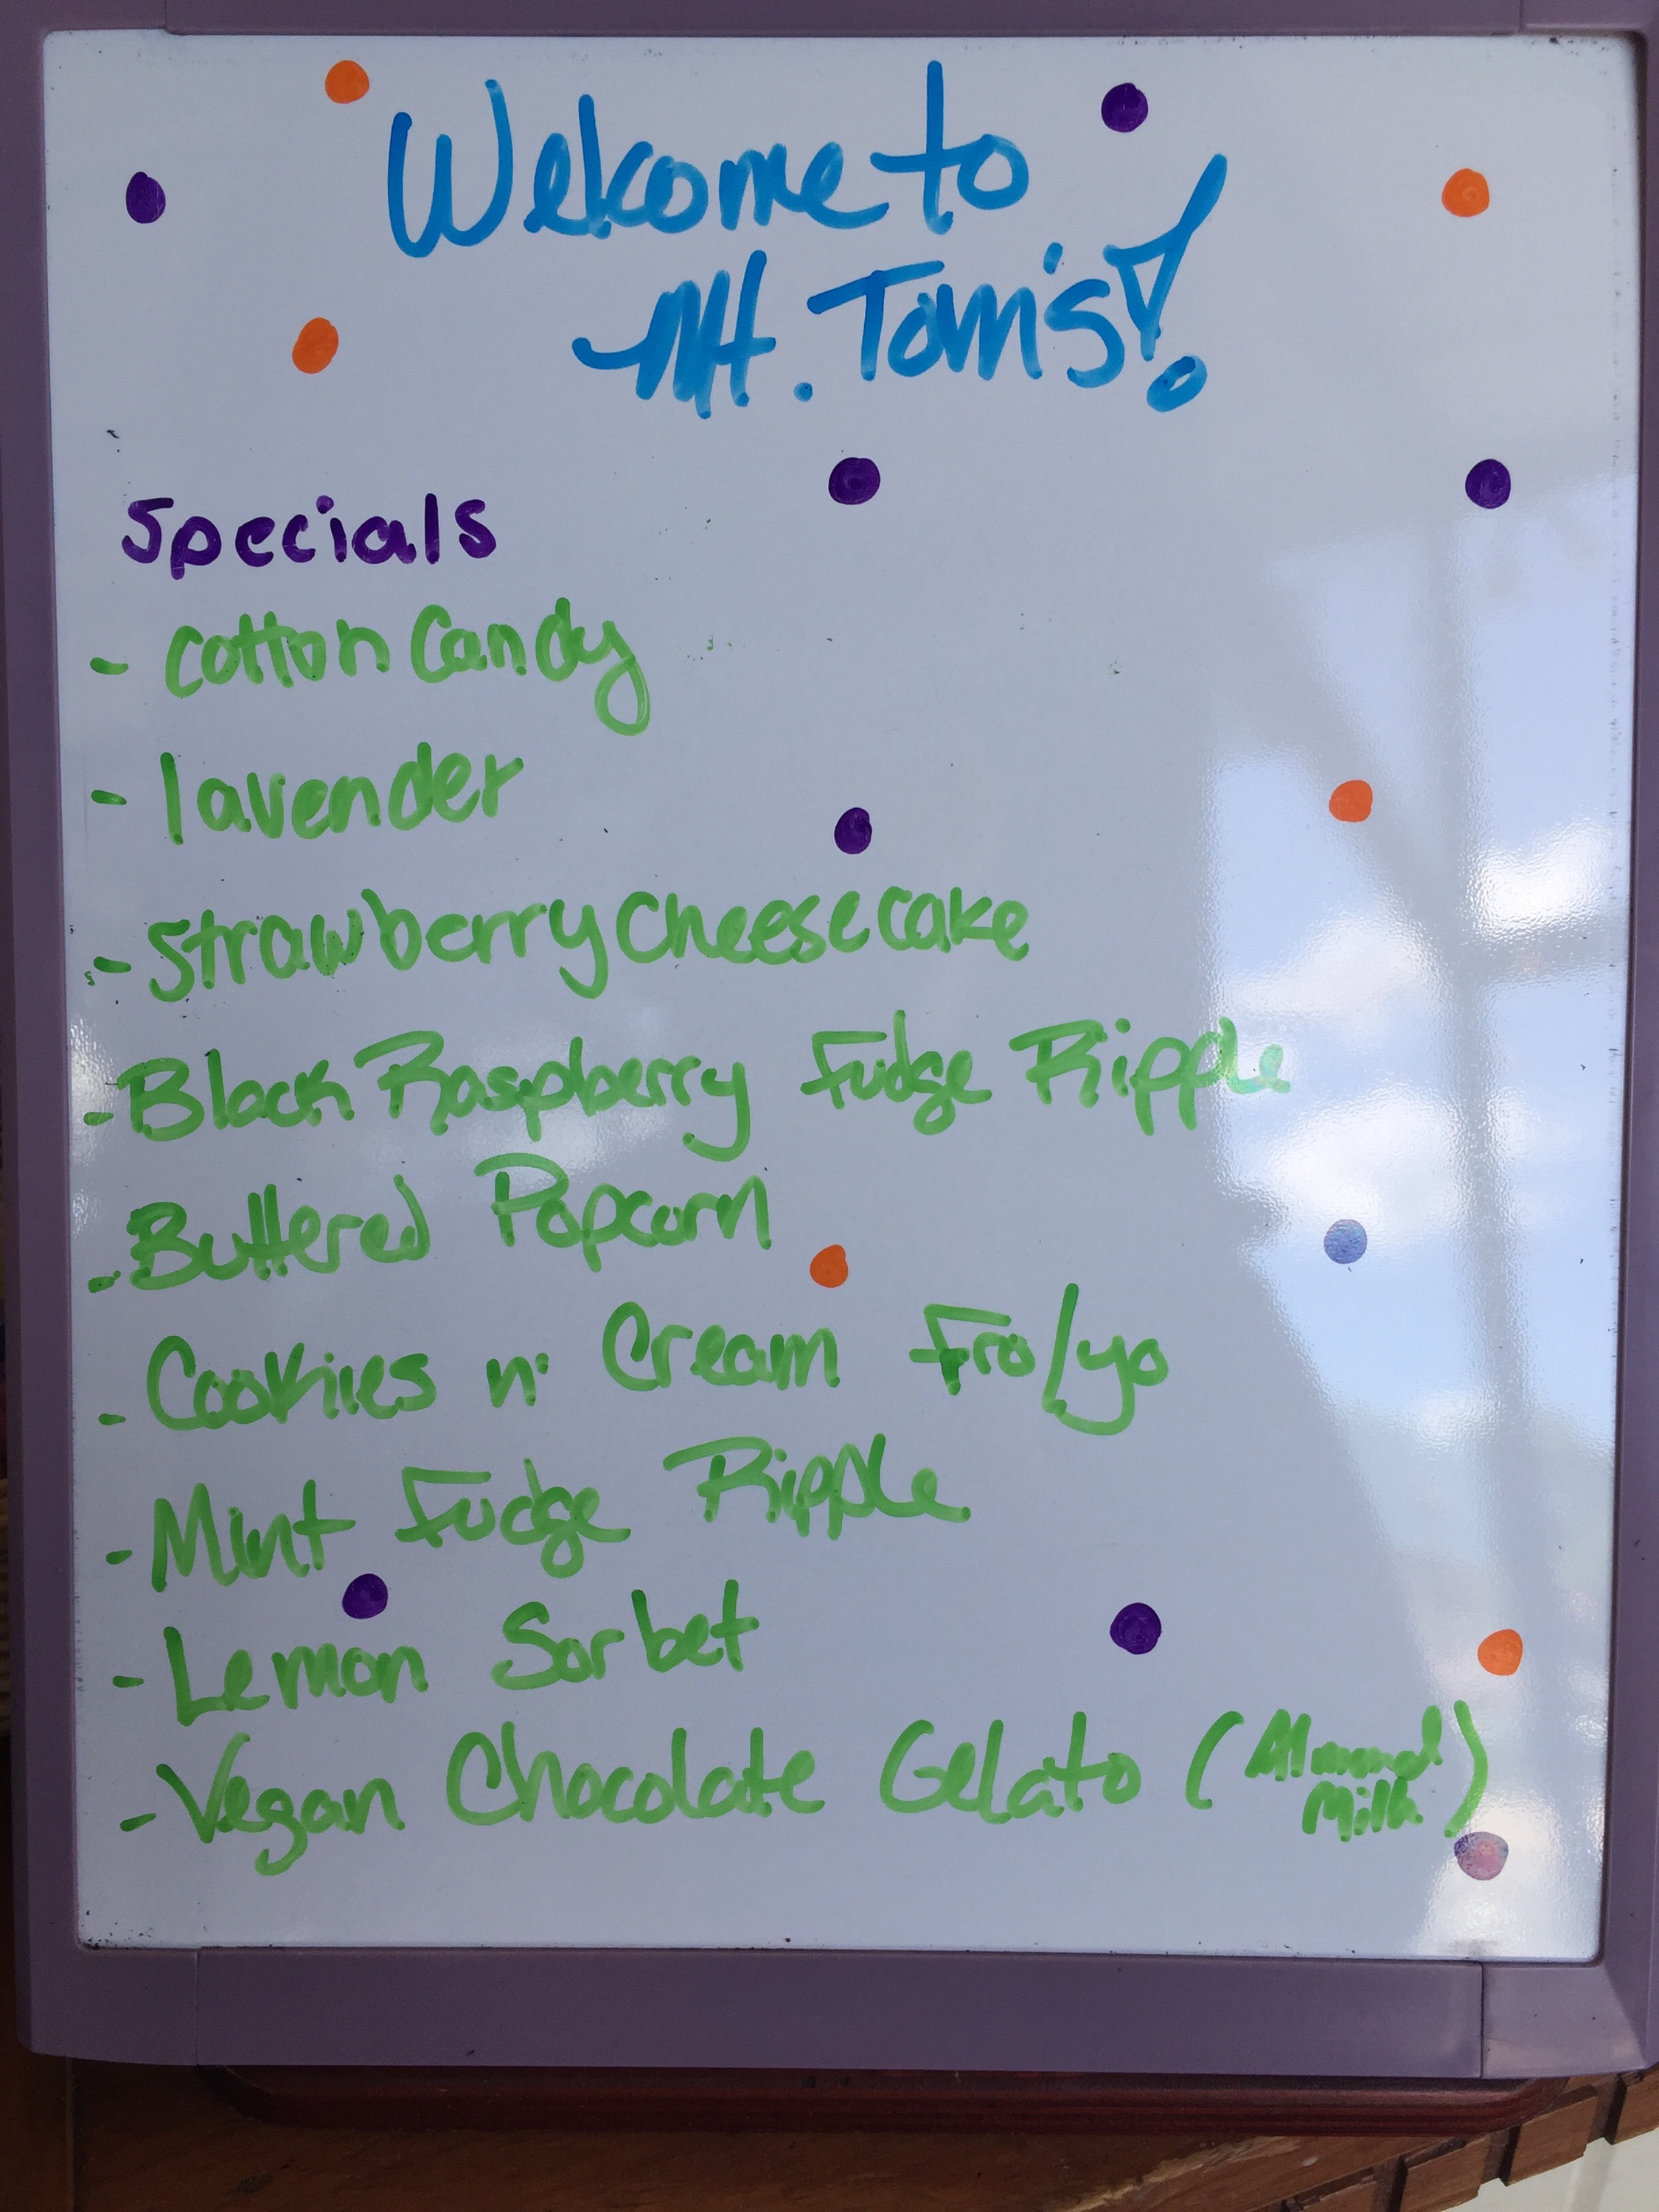 Welcome to
Mt. Tom's!
Specials
- Cotton Candy
- lavender
- Strawberry Cheesecake
- Black Raspberry Fudge Ripple
- Buttered Popcorn
- Cookies n' Cream Fro/yo
- Mint Fudge Ripple
- Lemon Sorbet
- Vegan Chocolate Gelato (Almond
Milk)